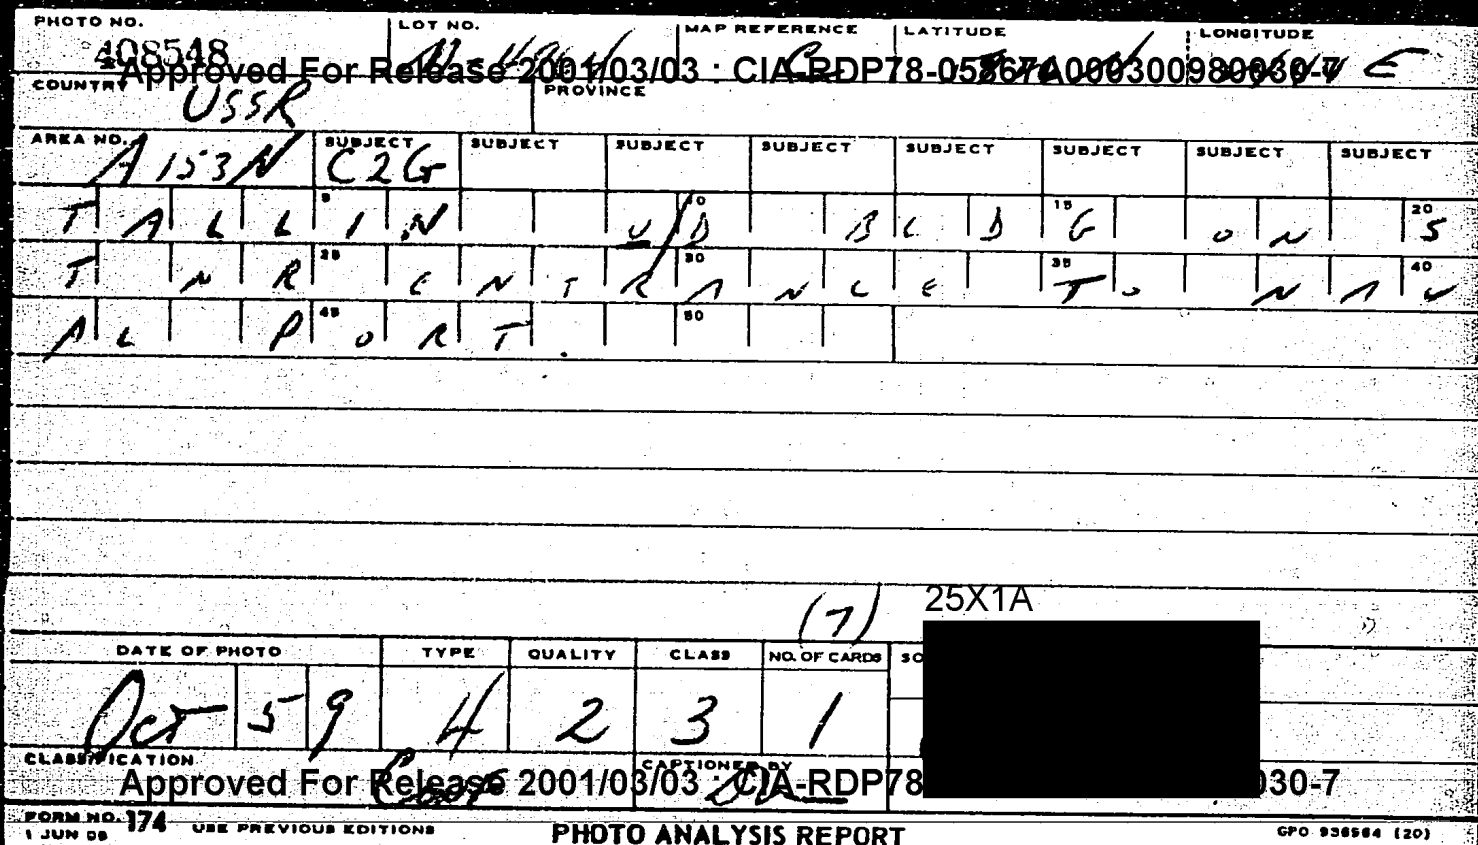 PHOTO NO. LOT NO. MAP REFERENCE LATITUDE LONGITUDE
408548 E
Approved For Release 2001/03/03 : CIA-RDP78-05867A000300980030-7
COUNTRY USSR PROVINCE
AREA NO. A 153 N SUBJECT C2G SUBJECT SUBJECT SUBJECT SUBJECT SUBJECT SUBJECT SUBJECT
5 10 15 20
TALLIN U/D BLDG ON S
25 30 35 40
T NR ENTRANCE TO NAV
45 50
AL PORT.
(7) 25X1A
DATE OF PHOTO TYPE QUALITY CLASS NO. OF CARDS SO
Oct 59 4 2 3 1
CLASSIFICATION CAPTIONED BY
Approved For Release 2001/03/03 : CIA-RDP78 030-7
FORM NO. 174 USE PREVIOUS EDITIONS PHOTO ANALYSIS REPORT GPO 936564 (20)
1 JUN 05